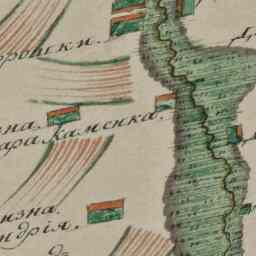 рошки.
зна.
ара Каменка.
изна.
ндрія.